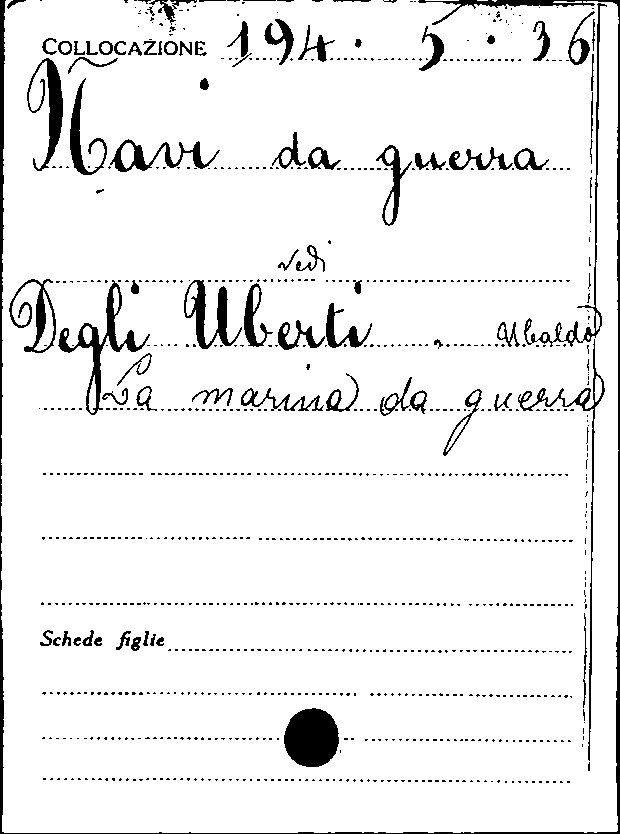 COLLOCAZIONE 194. 5. 36
Navi da guerra
vedi
Degli Uberti. Ubaldo
La marina da guerra
Schede figlie